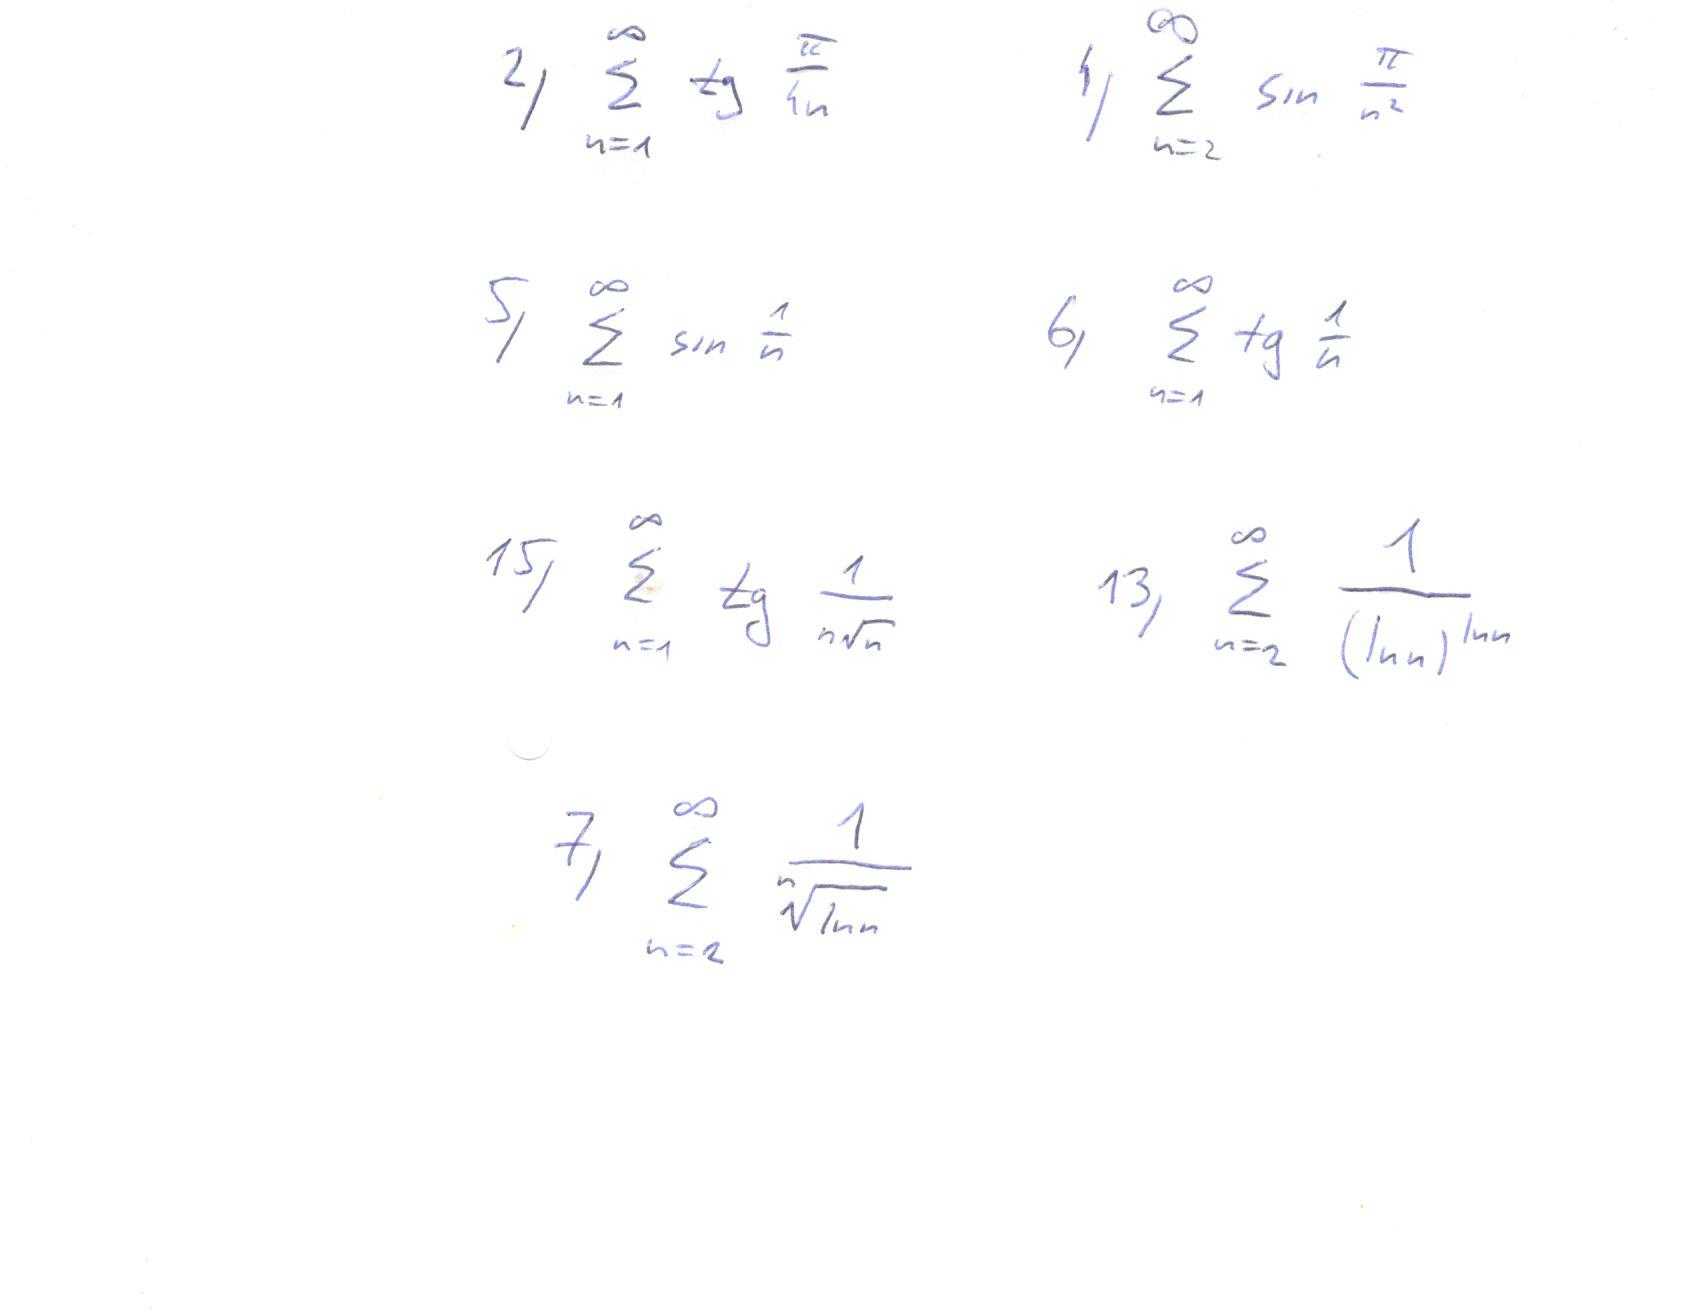 2, ∞ ∑ n=1 tg π/4n 4, ∞ ∑ n=2 sin π/n²
5, ∞ ∑ n=1 sin 1/n 6, ∞ ∑ n=1 tg 1/n
15, ∞ ∑ n=1 tg 1/n√n 13, ∞ ∑ n=2 1/(ln n)^ln n
7, ∞ ∑ n=2 1/ⁿ√ln n